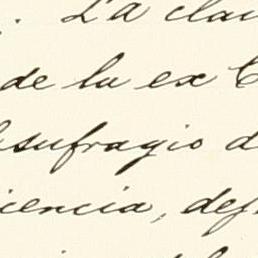 . La clau
de la ex C
sufragio d
iencia, def